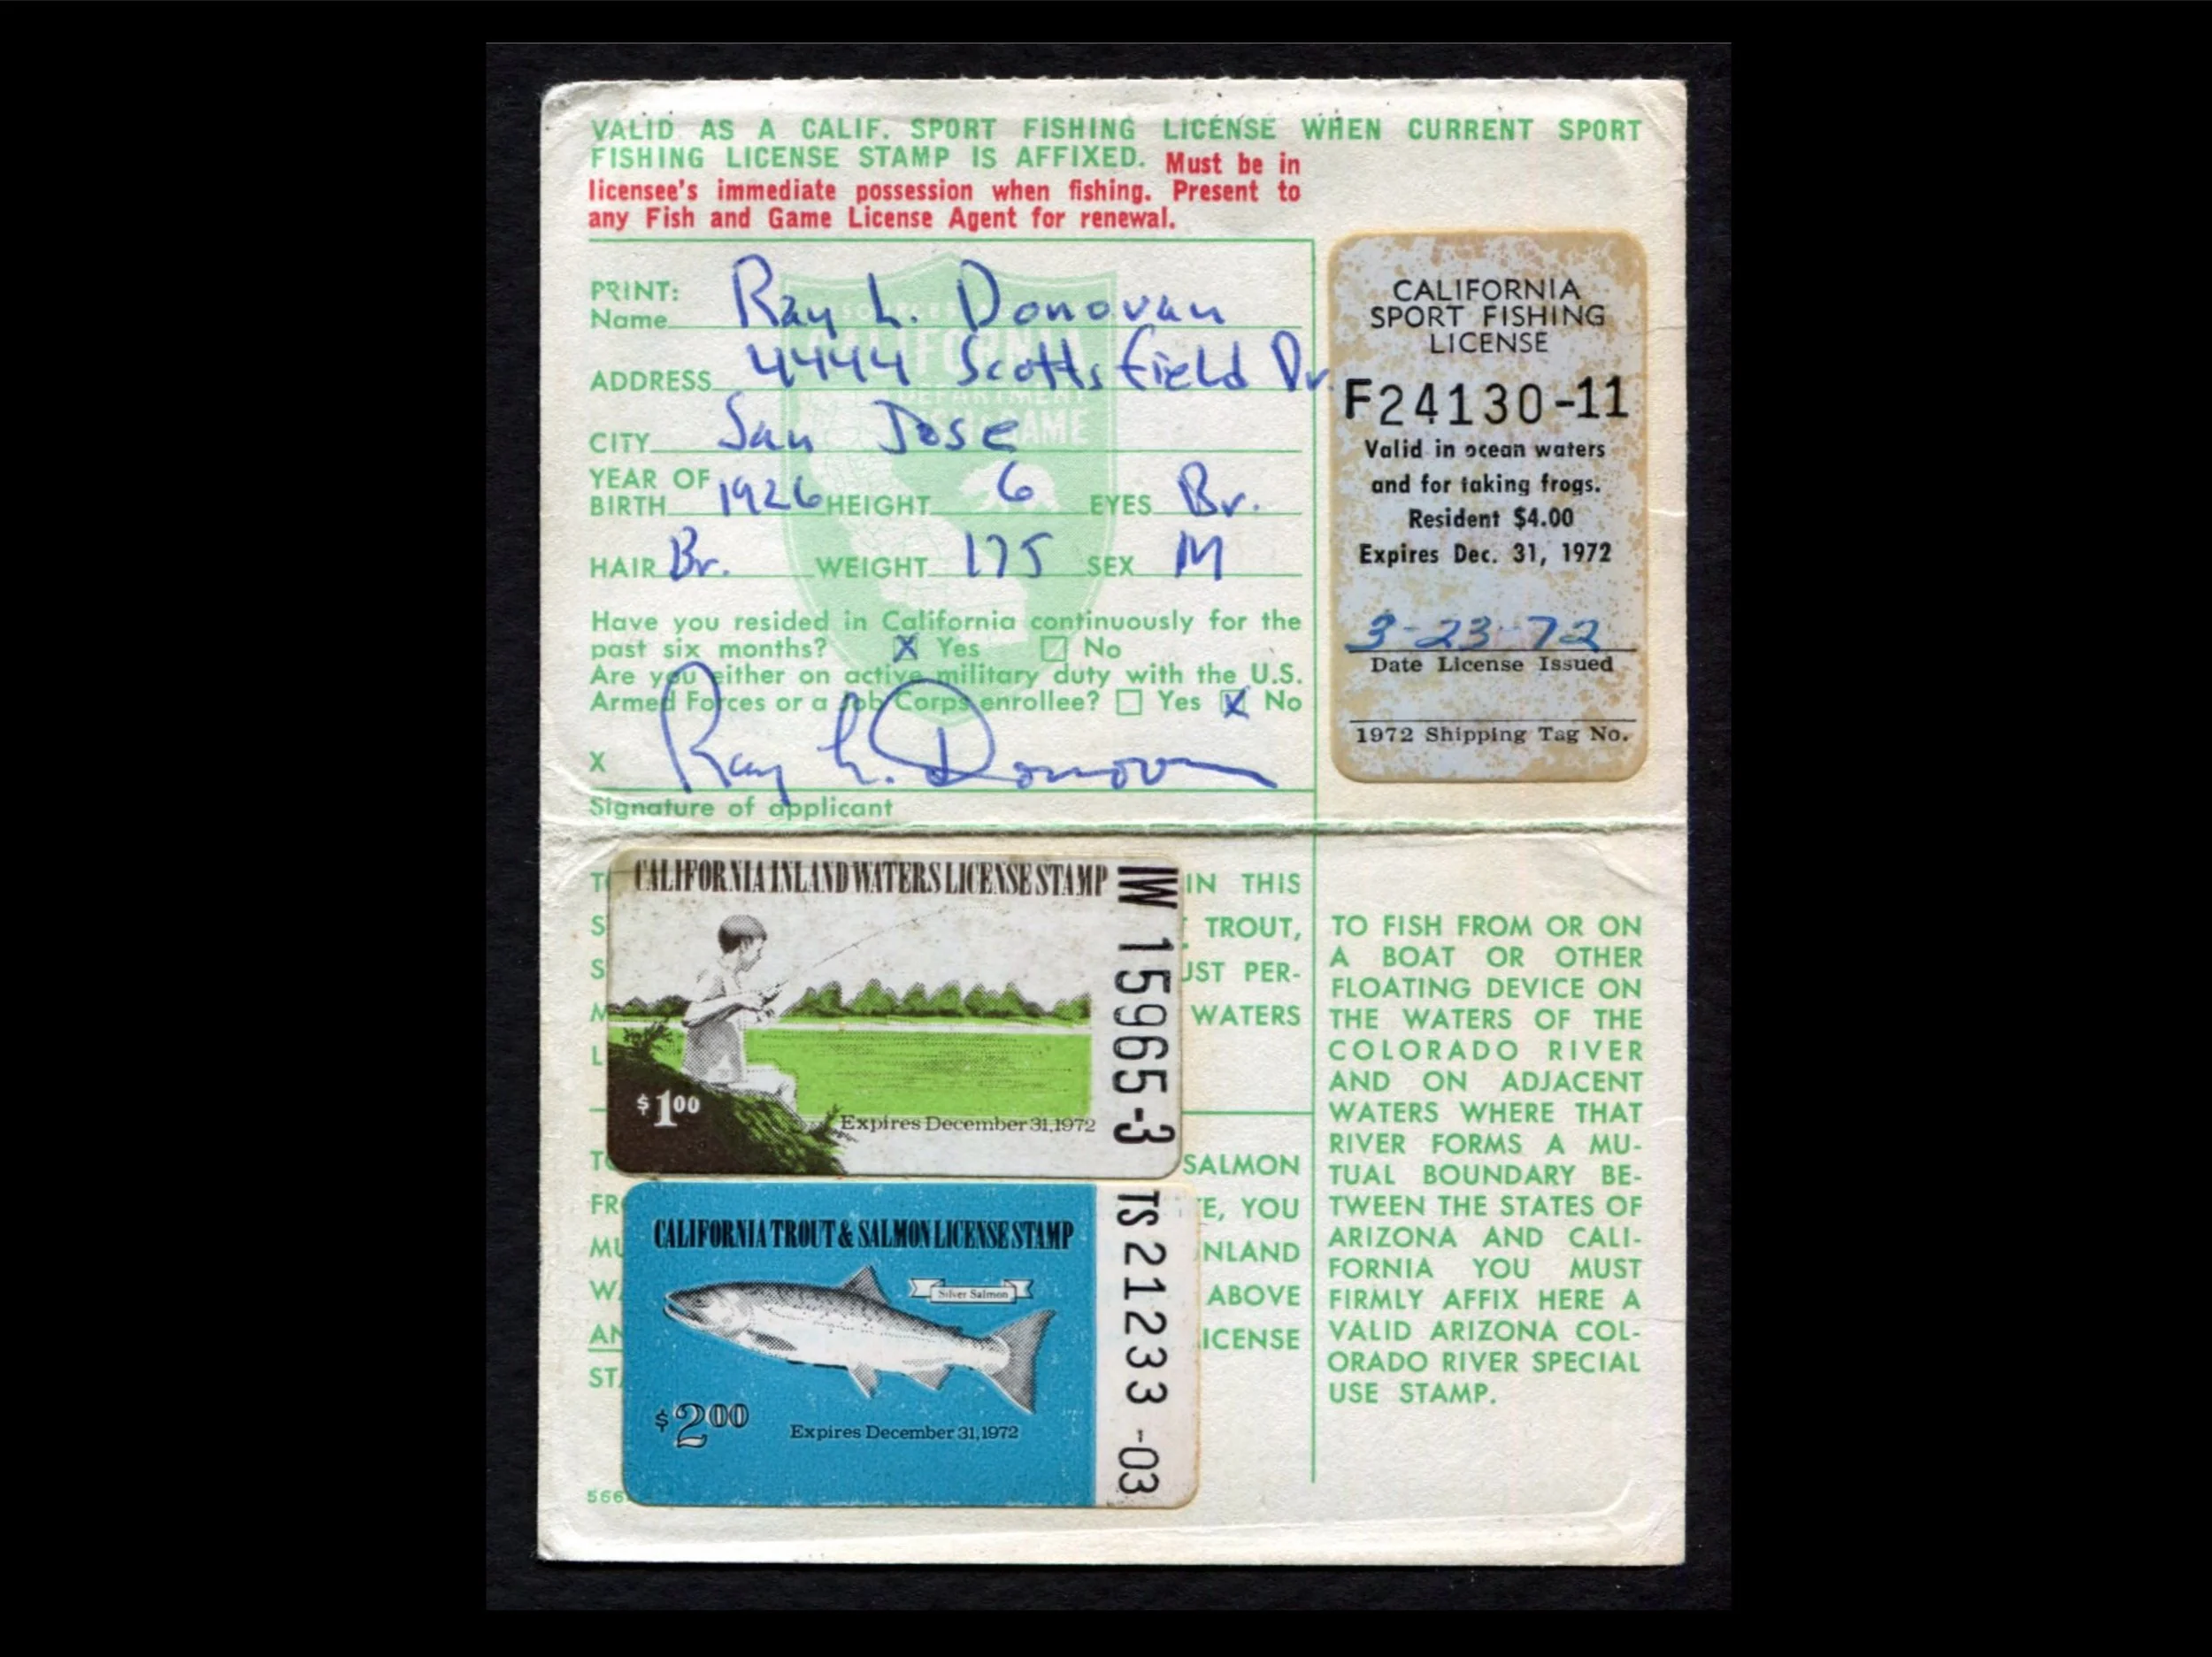 VALID AS A CALIF. SPORT FISHING LICENSE WHEN CURRENT SPORT
FISHING LICENSE STAMP IS AFFIXED. Must be in
licensee's immediate possession when fishing. Present to
any Fish and Game License Agent for renewal.
PRINT:
Name Ray L. Donovan
ADDRESS 4444 Scottsfield Dr.
CITY San Jose
YEAR OF
BIRTH 1926 HEIGHT 6 EYES Br.
HAIR Br. WEIGHT 175 SEX M
Have you resided in California continuously for the
past six months? X Yes No
Are you either on active military duty with the U.S.
Armed Forces or a Job Corps enrollee? Yes X No
X Ray L. Donovan
Signature of applicant
CALIFORNIA
DEPARTMENT
FISH & GAME
CALIFORNIA
SPORT FISHING
LICENSE
F24130-11
Valid in ocean waters
and for taking frogs.
Resident $4.00
Expires Dec. 31, 1972
3-23-72
Date License Issued
1972 Shipping Tag No.
CALIFORNIA INLAND WATERS LICENSE STAMP
IW 15965-3
$1.00
Expires December 31, 1972
IN THIS
TROUT,
UST PER-
WATERS
CALIFORNIA TROUT & SALMON LICENSE STAMP
TS 21233-03
Silver Salmon
$2.00
Expires December 31, 1972
SALMON
E, YOU
NLAND
ABOVE
ICENSE
566
TO FISH FROM OR ON
A BOAT OR OTHER
FLOATING DEVICE ON
THE WATERS OF THE
COLORADO RIVER
AND ON ADJACENT
WATERS WHERE THAT
RIVER FORMS A MU-
TUAL BOUNDARY BE-
TWEEN THE STATES OF
ARIZONA AND CALI-
FORNIA YOU MUST
FIRMLY AFFIX HERE A
VALID ARIZONA COL-
ORADO RIVER SPECIAL
USE STAMP.